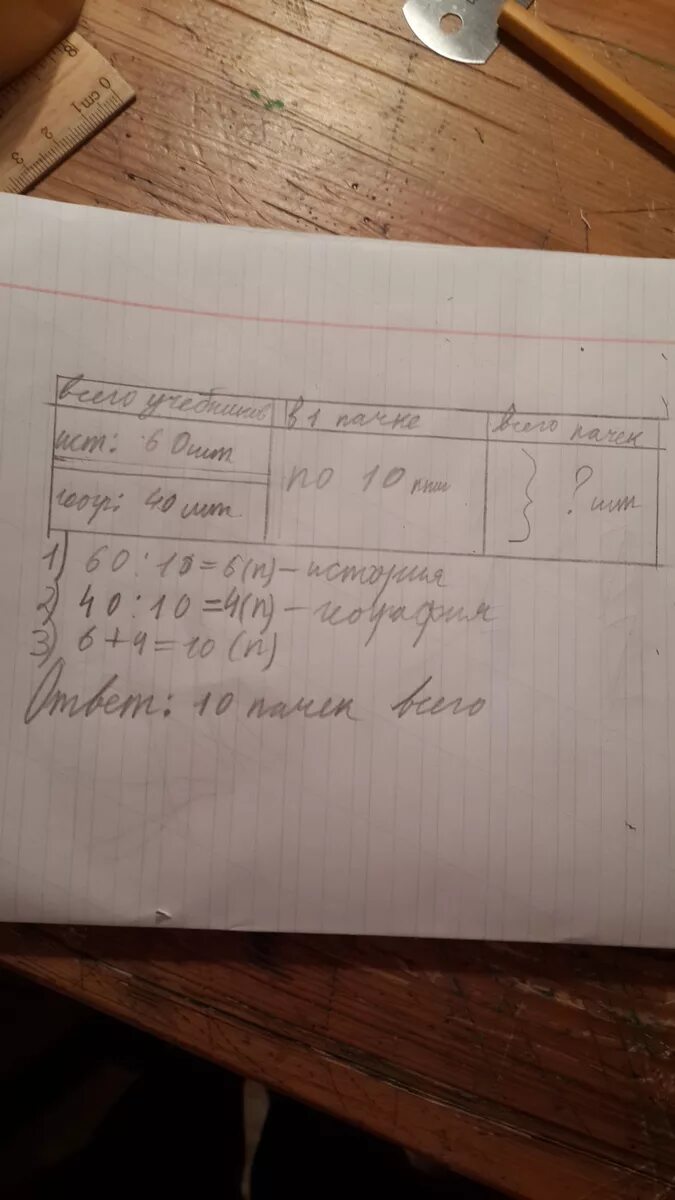 0 cm 1 2 3
8
всего учебников в 1 пачке всего пачек
ист: 60 шт по 10 } ? шт
геогр: 40 шт
1) 60 : 10 = 6 (п) – история
2) 40 : 10 = 4 (п) – география
3) 6 + 4 = 10 (п)
Ответ: 10 пачек всего